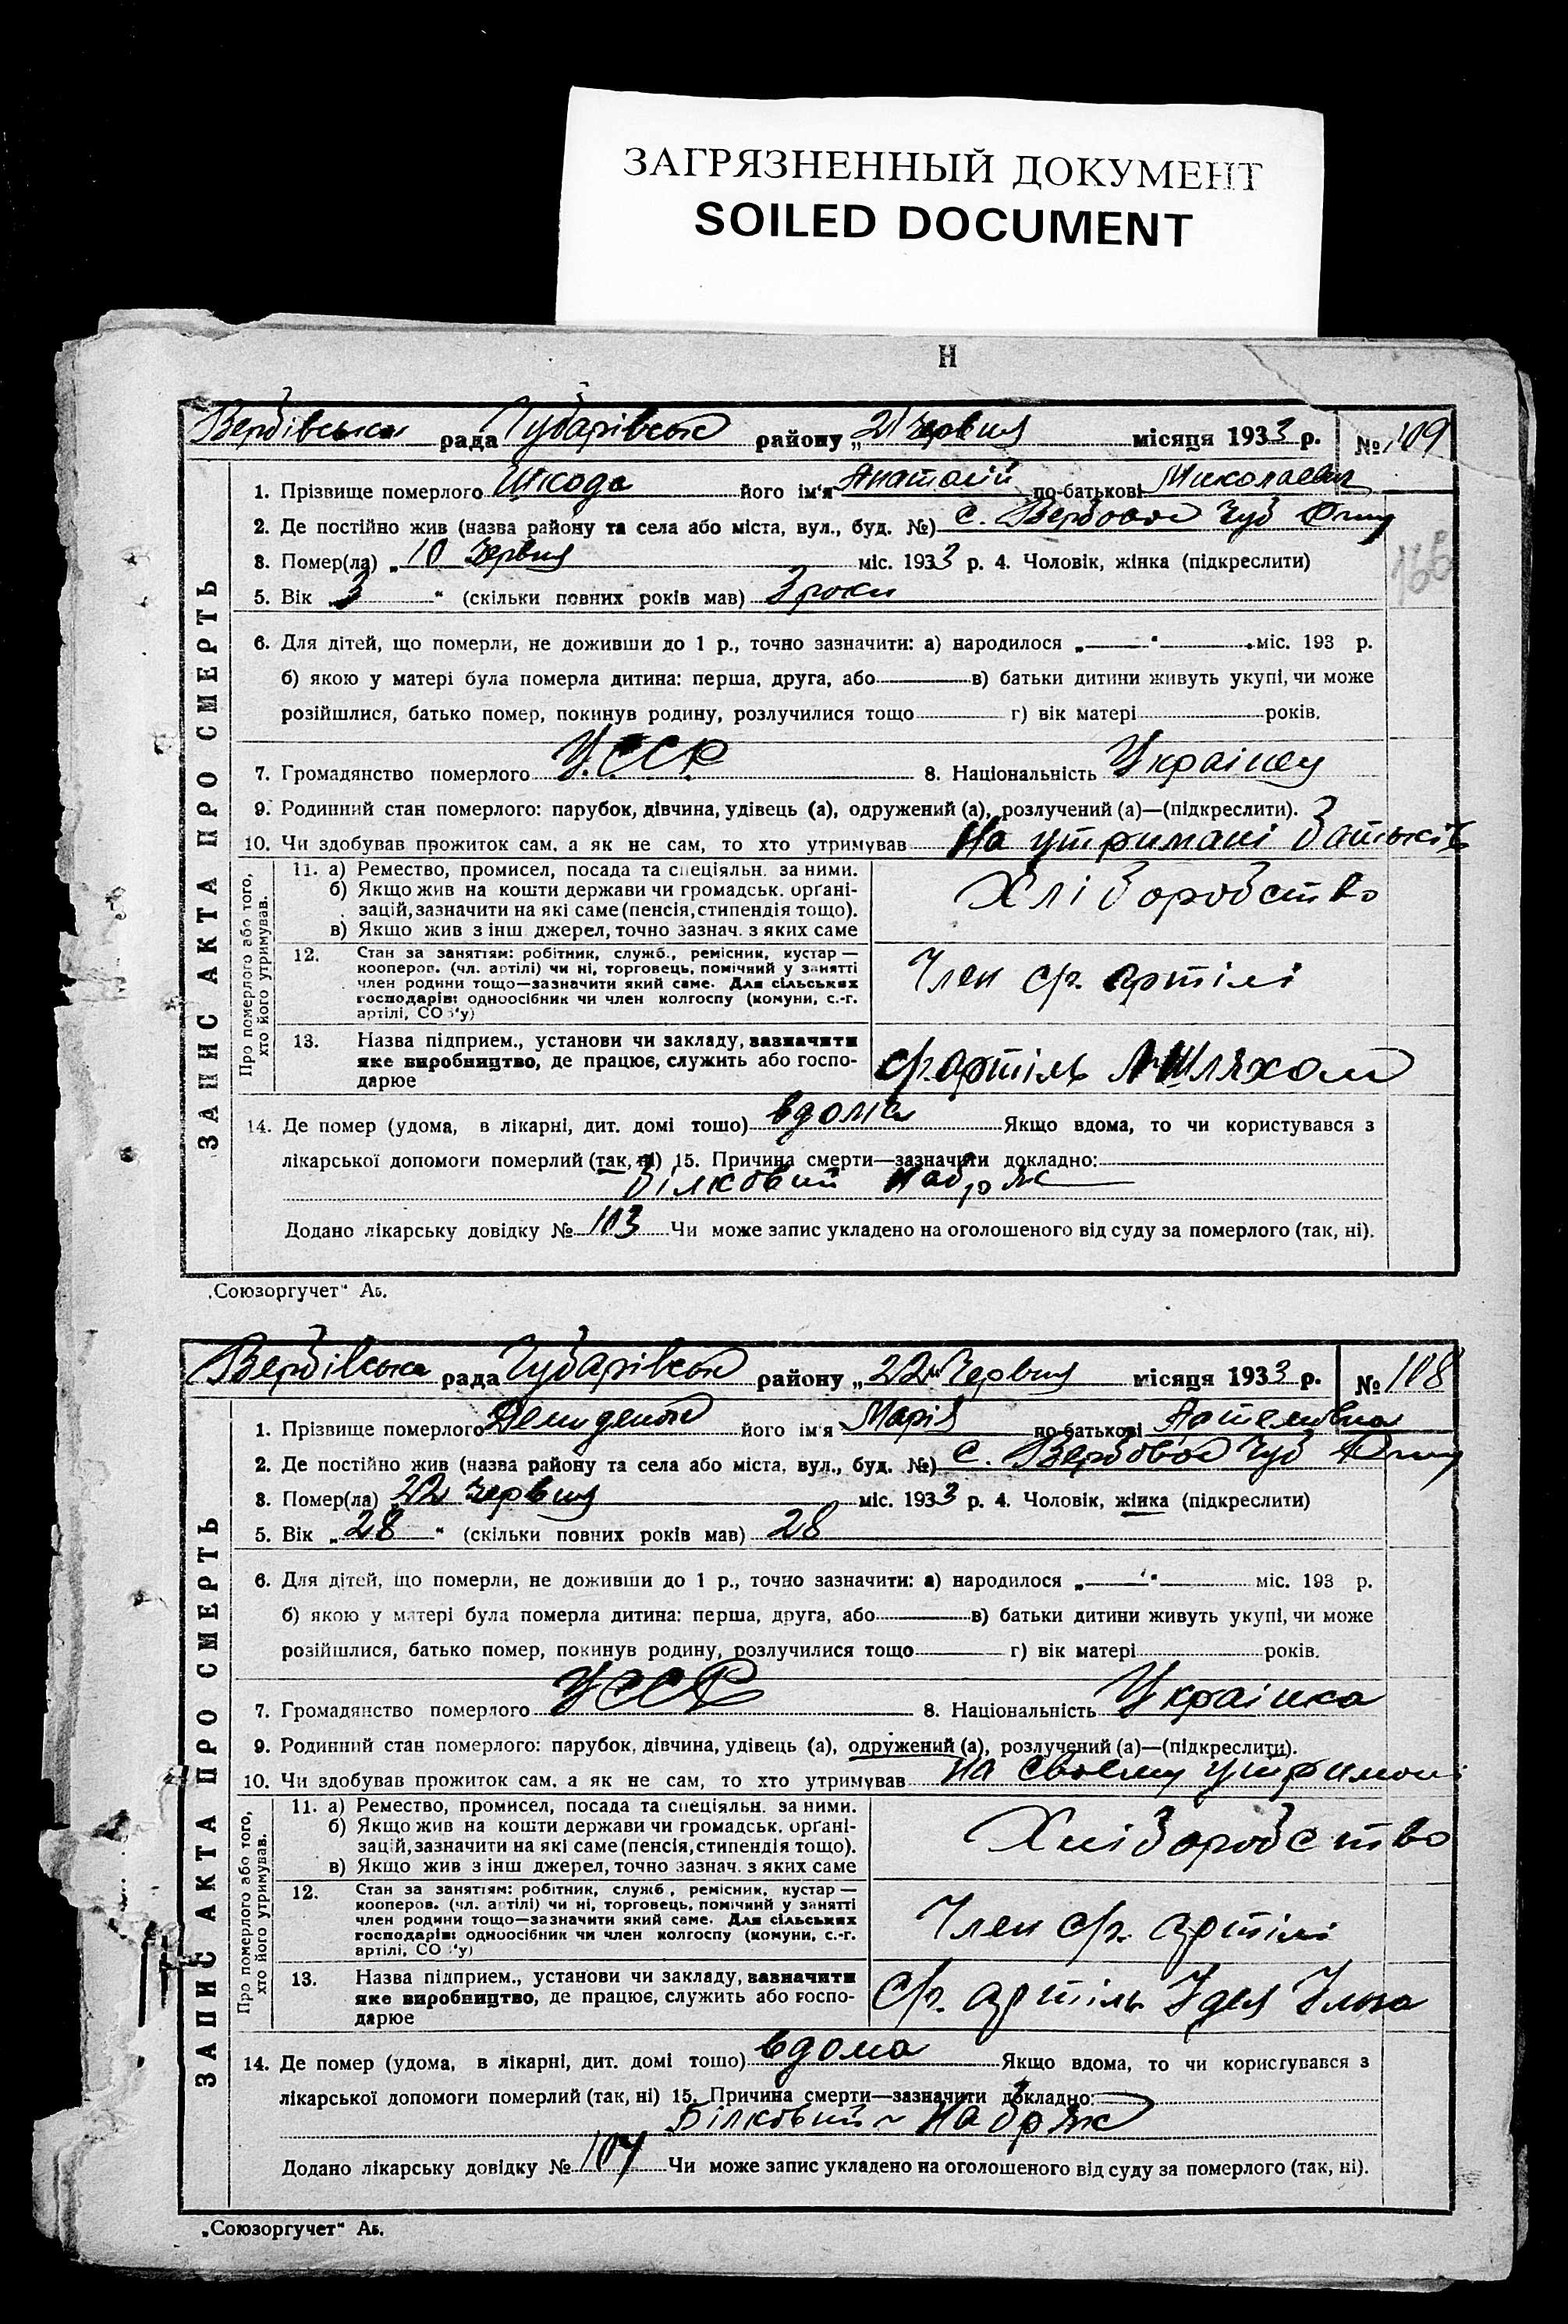 ЗАГРЯЗНЕННЫЙ ДОКУМЕНТ
SOILED DOCUMENT
Н
Вербівська рада Чубарівськ району „21 червня місяця 1933 р. № 109
ЗАПИС АКТА ПРО СМЕРТЬ
1. Прізвище померлого Шкода його ім'я Анатолій по-батькові Миколаевич
2. Де постійно жив (назва району та села або міста, вул., буд. №) с. Вербовое Чуб
166
3. Помер(ла) „10 Червня міс. 1933 р. 4. Чоловік, жінка (підкреслити)
5. Вік 3 “ (скільки повних років мав) 3 роки
6. Для дітей, що померли, не доживши до 1 р., точно зазначити: а) народилося „ “ міс. 193 р.
б) якою у матері була померла дитина: перша, друга, або в) батьки дитини живуть укупі, чи може
розійшлися, батько помер, покинув родину, розлучилися тощо г) вік матері років.
7. Громадянство померлого УССР 8. Національність Українец
9. Родинний стан померлого: парубок, дівчина, удівець (а), одружений (а), розлучений (а)—(підкреслити).
10. Чи здобував прожиток сам, а як не сам, то хто утримував На утримані батьків
Про померлого або того, хто його утримував.
11. а) Ремество, промисел, посада та спеціяльн. за ними.
б) Якщо жив на кошти держави чи громадськ. орґані-
зацій, зазначити на які саме (пенсія, стипендія тощо).
в) Якщо жив з інш джерел, точно зазнач. з яких саме
Хліборобство
12. Стан за заняттям: робітник, служб., ремісник, кустар —
кооперов. (чл. артілі) чи ні, торговець, помічний у занятті
член родини тощо—зазначити який саме. Для сільських
господарів: одноосібник чи член колгоспу (комуни, с.-г.
артілі, СОЗ'у)
Член с/г. артілі
13. Назва підприєм., установи чи закладу, зазначити
яке виробництво, де працює, служить або госпо-
дарює
с/г. артіль Шляхом
14. Де помер (удома, в лікарні, дит. домі тощо) вдома Якщо вдома, то чи користувався з
лікарської допомоги померлий (так, ні) 15. Причина смерти—зазначити докладно:
Білковий набряк
Додано лікарську довідку № 103 Чи може запис укладено на оголошеного від суду за померлого (так, ні).
„Союзоргучет“ Аб.
Вербівська рада Чубарівськ району „22 Червня місяця 1933 р. № 108
ЗАПИС АКТА ПРО СМЕРТЬ
1. Прізвище померлого Демиденко його ім'я Марія по-батькові Артемівна
2. Де постійно жив (назва району та села або міста, вул., буд. №) с. Вербовое Чуб
3. Помер(ла) „22 червня міс. 1933 р. 4. Чоловік, жінка (підкреслити)
5. Вік „28 “ (скільки повних років мав) 28
6. Для дітей, що померли, не доживши до 1 р., точно зазначити: а) народилося „ “ міс. 193 р.
б) якою у матері була померла дитина: перша, друга, або в) батьки дитини живуть укупі, чи може
розійшлися, батько помер, покинув родину, розлучилися тощо г) вік матері років.
7. Громадянство померлого УССР 8. Національність Українка
9. Родинний стан померлого: парубок, дівчина, удівець (а), одружений (а), розлучений (а)—(підкреслити).
10. Чи здобував прожиток сам, а як не сам, то хто утримував на своему утримані
Про померлого або того, хто його утримував.
11. а) Ремество, промисел, посада та спеціяльн. за ними.
б) Якщо жив на кошти держави чи громадськ. орґані-
зацій, зазначити на які саме (пенсія, стипендія тощо).
в) Якщо жив з інш джерел, точно зазнач. з яких саме
Хліборобство
12. Стан за заняттям: робітник, служб., ремісник, кустар —
кооперов. (чл. артілі) чи ні, торговець, помічний у занятті
член родини тощо—зазначити який саме. Для сільських
господарів: одноосібник чи член колгоспу (комуни, с.-г.
артілі, СОЗ'у)
Член с/г. артілі
13. Назва підприєм., установи чи закладу, зазначити
яке виробництво, де працює, служить або госпо-
дарює
с/г. артіль Ідея Ілліча
14. Де помер (удома, в лікарні, дит. домі тощо) вдома Якщо вдома, то чи користувався з
лікарської допомоги померлий (так, ні) 15. Причина смерти—зазначити докладно:
Білковий набряк
Додано лікарську довідку № 104 Чи може запис укладено на оголошеного від суду за померлого (так, ні).
„Союзоргучет“ Аб.